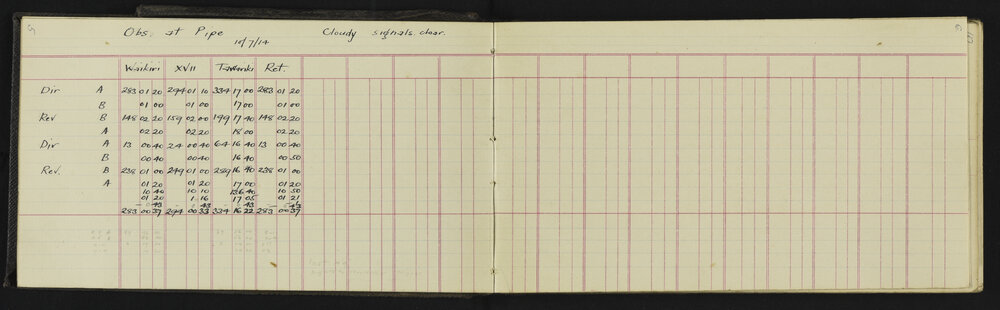 Obs. at Pipe Cloudy signals clear.
10/7/14
Waikiri XVII Ret.
Dir A 283 01 20 294 01 10 334 17 00 283 01 20
B 01 00 01 00 17 00 01 00
Rev B 148 02 20 159 02 00 199 17 40 148 02 20
A 02 20 02 20 18 00 02 20
Dir A 13 00 40 24 00 40 64 16 40 13 00 40
B 00 40 00 40 16 40 00 50
Rev. B 238 01 00 249 01 00 289 16 40 238 01 00
A 01 20 01 20 17 00 01 20
10 40 10 10 136 40 10 50
01 20 1 16 17 05 01 21
- 0 43 - 0 43 - 0 43 - 0 43
283 00 37 294 00 33 334 16 22 283 00 37